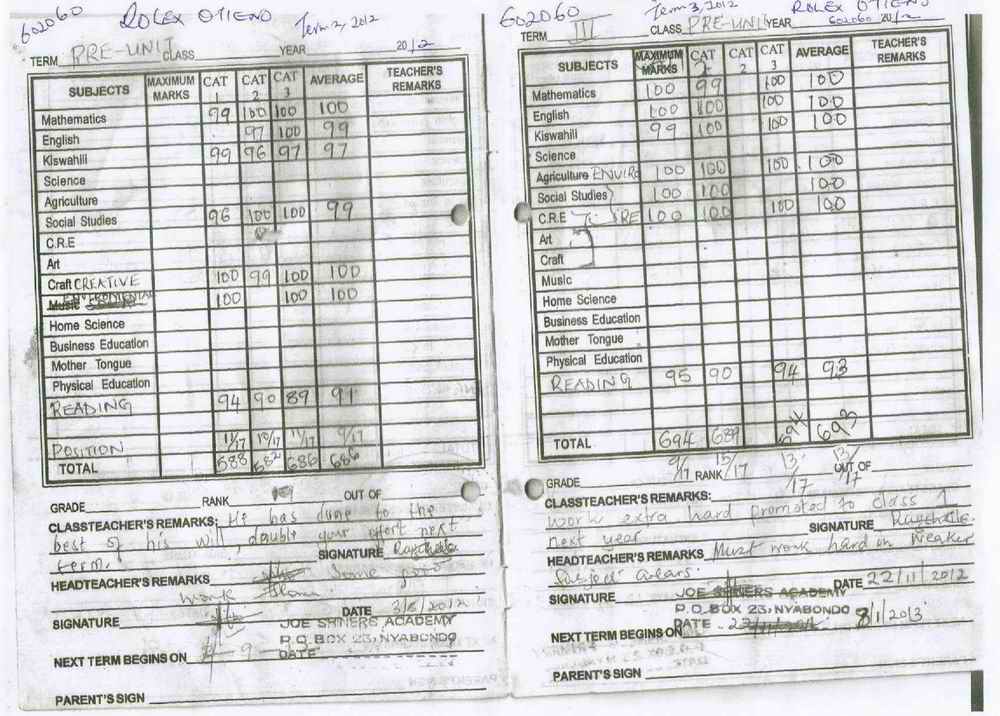 602060 ROLEX OTIENO Term 2, 2012
TERM PRE-UNIT CLASS YEAR 2012
SUBJECTS MAXIMUM MARKS CAT 1 CAT 2 CAT 3 AVERAGE TEACHER'S REMARKS
Mathematics 99 100 100 100
English 97 100 99
Kiswahili 99 96 97 97
Science
Agriculture
Social Studies 96 100 100 99
C.R.E
Art
Craft CREATIVE 100 99 100 100
Music 100 100 100
Home Science
Business Education
Mother Tongue
Physical Education
READING 94 90 89 91
POSITION 11/17 10/17 11/17 9/17
TOTAL 588 682 686 686
GRADE RANK OUT OF
CLASSTEACHER'S REMARKS: He has done to the
best of his will, double your effort next
term. SIGNATURE
HEADTEACHER'S REMARKS Some good
work
SIGNATURE DATE 3/8/2012
JOE SHNERS ACADEMY
P.O. BOX 23, NYABONDO
NEXT TERM BEGINS ON 9 DATE
PARENT'S SIGN
602060 Term 3, 2012 ROLEX OTIENO
TERM III CLASS PRE-UNIT YEAR 602060 2012
SUBJECTS MAXIMUM MARKS CAT 1 CAT 2 CAT 3 AVERAGE TEACHER'S REMARKS
Mathematics 100 99 100 100
English 100 100 100 100
Kiswahili 99 100 100 100
Science
Agriculture ENVIRO 100 100 100 100
Social Studies 100 100 100
C.R.E 100 100 100 100
Art
Craft
Music
Home Science
Business Education
Mother Tongue
Physical Education
READING 95 90 94 93
TOTAL 694 689 694 693
GRADE 9/17 RANK 15/17 13/17 OUT OF 13/17
CLASSTEACHER'S REMARKS:
work extra hard promoted to class 1
next year SIGNATURE
HEADTEACHER'S REMARKS Must work hard on weaker
subject areas.
SIGNATURE DATE 22/11/2012
JOE SHNERS ACADEMY
P.O. BOX 23, NYABONDO
DATE
NEXT TERM BEGINS ON 8/1/2013
PARENT'S SIGN